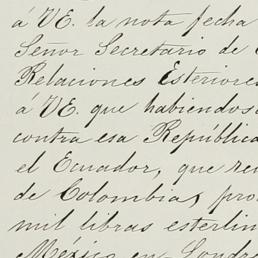 á VE. la nota fecha
Señor Secretario de
Relaciones Esteriores
a VE. que habiendos
contra esa República
el Ecuador, que re
de Colombia, pro
mil libras esterlin
México en Londre